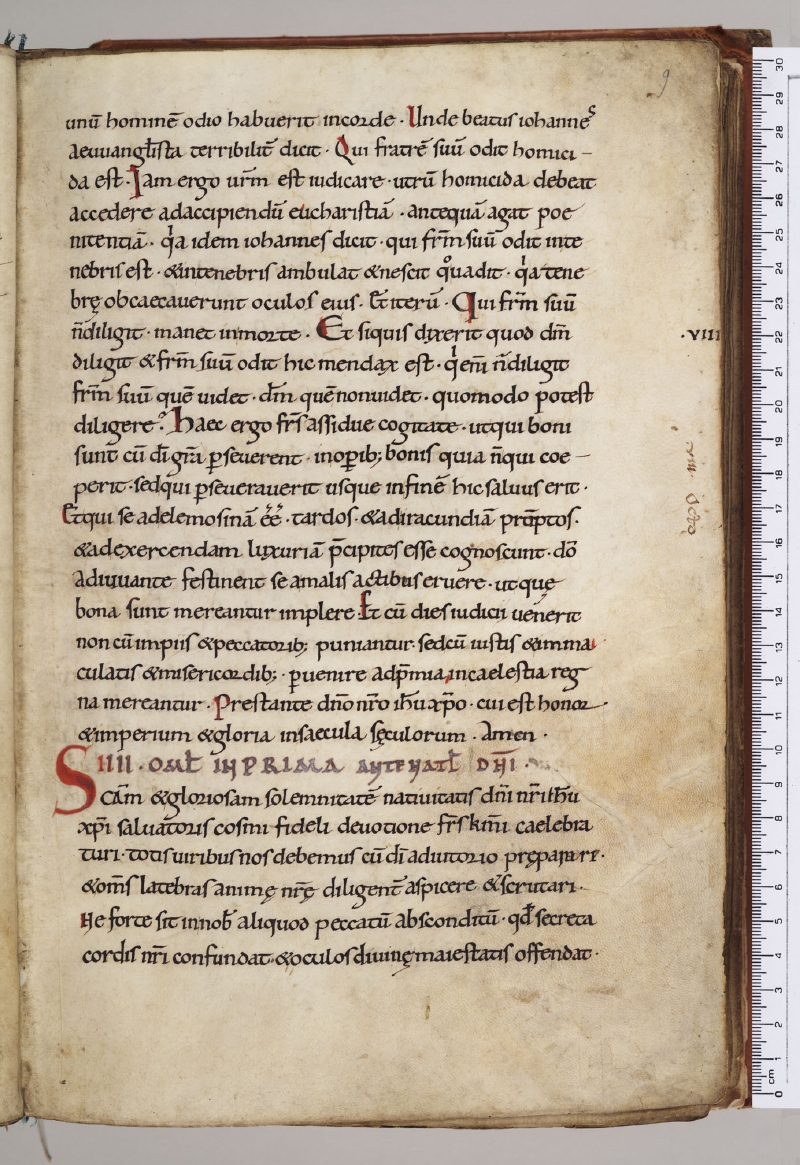 9
unū hominē odio habuerit incorde · Unde beatus iohanneˢ
aeuuangl̄ista terribilit̄ dicit · Qui fratrē suū odit homici –
da est · Iam ergo ur̄m est iudicare · utrū homicida debeat
accedere adaccipiendū eucharistiā · antequā agat poe
nitentiā · qͥa idem iohannes dicit · qui fr̄m suū odit inte
nebris est · &intenebris ambulat &nescit qͦuadit · qͥa tene
brę obcaecauerunt oculos eius · Et iterū · Qui fr̄m suū
n̄diligit · manet inmorte · Et siquis dixerit quod dm̄
·VIII
diligit &fr̄m suū odit hic mendax est · qͥ eni̅ n̄diligit
fr̄m suū quē uidet · dm̄ quē nonuidet · quomodo potest
diligere? Haec ergo fr̄s assidue cogitate · utqui boni
sunt cū dī gr̄a p̱seuerent · inop̱ib; bonis quia n̄qui coe –
perit · sedqui p̱seuerauerit usque infinē hic saluus erit ·
Etqui se adelemosinā éé · tardos · &adiracundiā prūptos ·
&adexercendam luxuriā p̄cipites esse cognoscunt · dō
adiuuante festinent se amalis actibus eruere · utquę
bona sunt mereantur implere · Et cū dies iudicii uenerit
non cū impiis &peccatorib; puniantur · sedcū iustis &imma
culatis &misericordib; · p̱uenire adp̄mia incaelestia reg
na mereantur · Prestante dn̄o nr̄o ih̄u xp̄o · cui est honor ·
&imperium &gloria insaecula sęculorum · Amen ·
IIII · OML̄ IN PRIMA ANTE NATL̄ DN̄I ·
Scām &gloriosam solemnitatē natiuitatis dn̄i nr̄i ih̄u
xp̄i saluatoris cosmi fideli deuotione fr̄s km̄i caelebra
turi · totis uiribus nos debemus cū dī adiutorio pręparare ·
&om̄s latebras animę nr̄ę diligent̄ aspicere &scrutari ·
Ne forte sit innob̄ aliquod peccatū absconditū · qd̄ secreta
cordis nr̄i confundat · &oculos diuinę maiestatis offendat ·